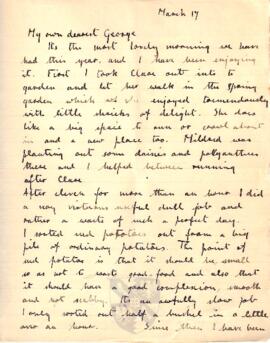 March 17
My own dearest George
Its the most lovely morning we have
had this year, and I have been enjoying
it. First I took Clare out into the
garden and let her walk in the spring
garden which we enjoyed tremendously
with little shrieks of delight. She does
like a big space to run or crawl about
in and a new place too. Mildred was
planting out some daisies and polyanthus
there and I helped between running
after Clare
After eleven for more than an hour I did
a very virtuous useful dull job and
rather a waste of such a perfect day.
I sorted seed potatoes out from a big
pile of ordinary potatoes. The point of
seed potatoes is that it should be small
so as not to waste good food and also that
it should have a good complexion, smooth
and not nobbly. Its an awfully slow job
I only sorted out half a bushel in a little
over an hour. Since then I have been